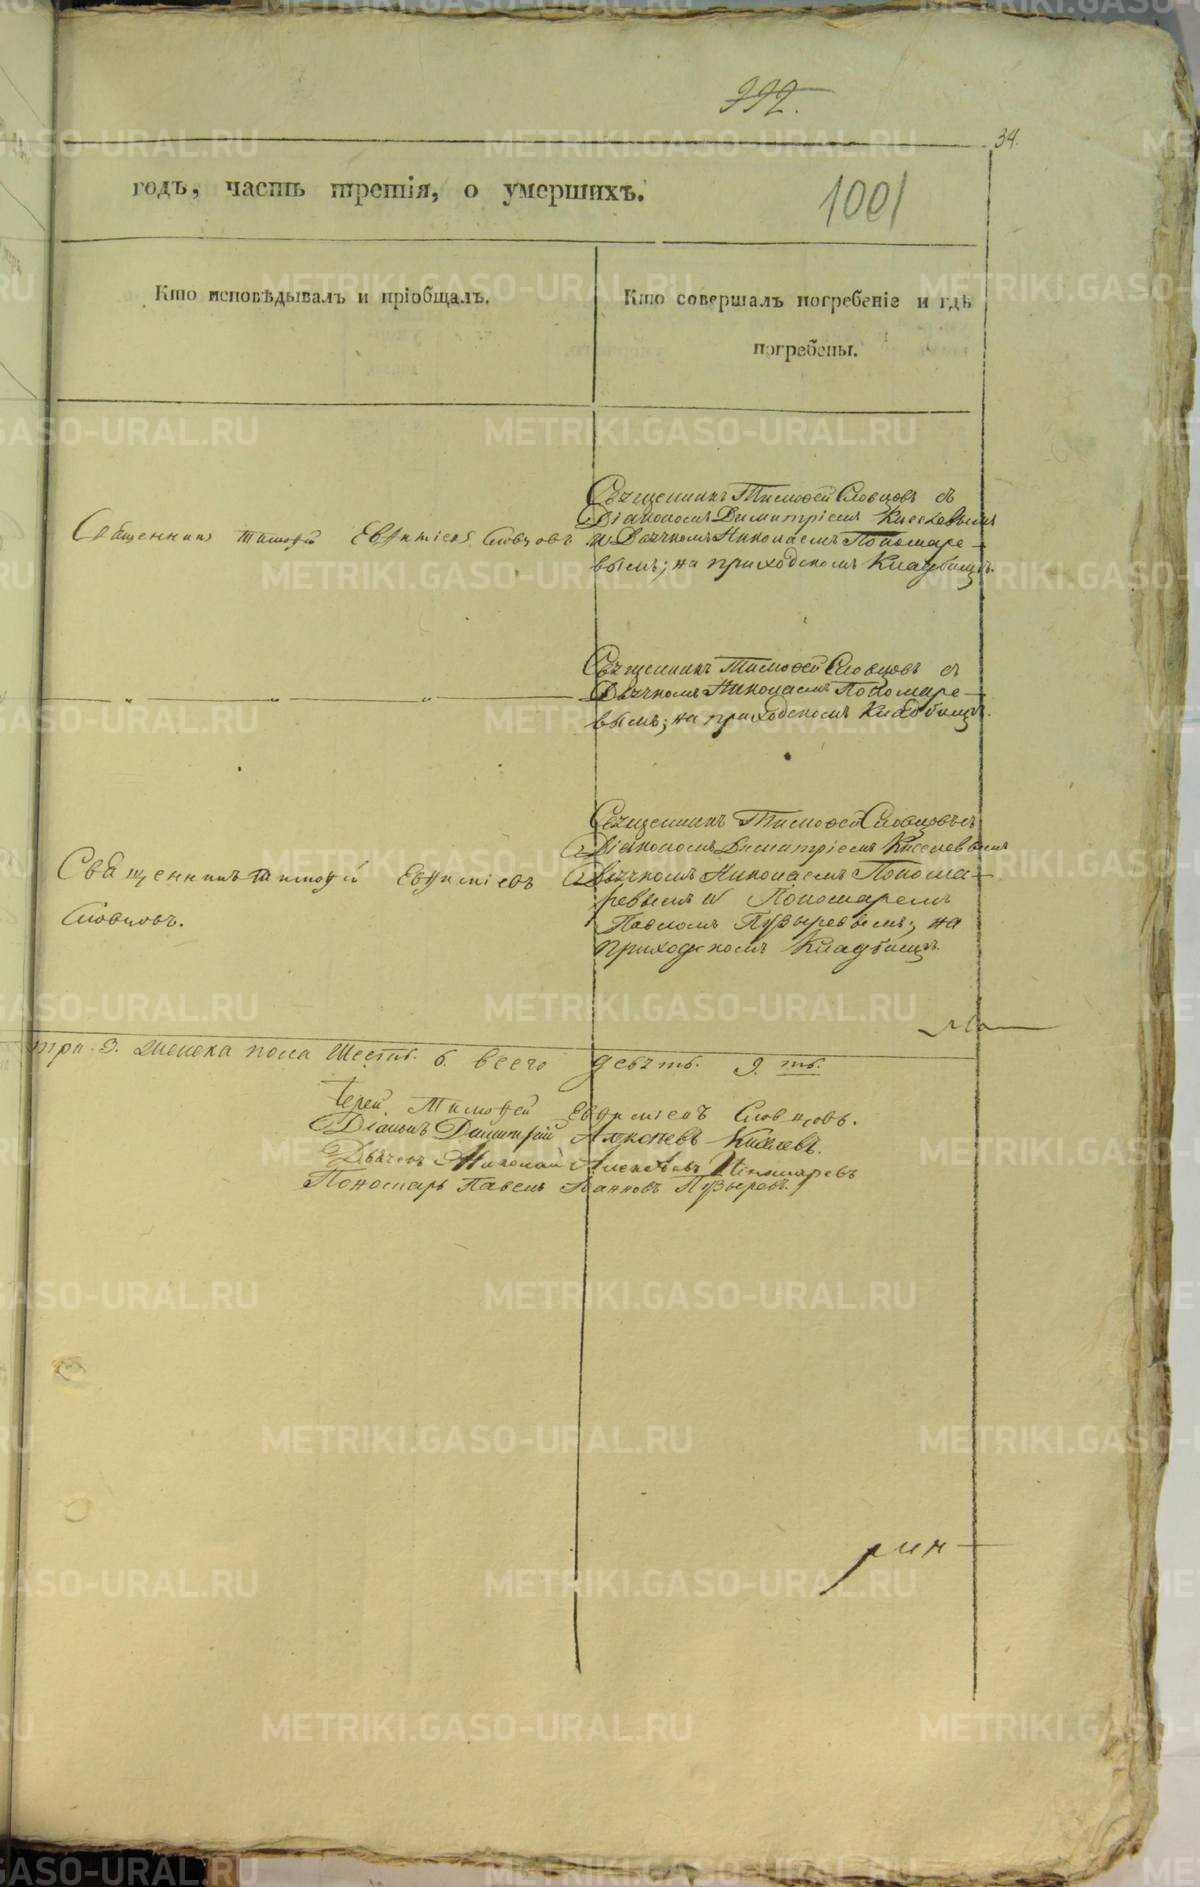 992.
34.
годъ, часть третія, о умершихъ.
1001
Кто исповѣдывалъ и пріобщалъ.
Кто совершалъ погребеніе и гдѣ
погребены.
Священникъ Тимофей Евфиміевъ Словцовъ
Священникъ Тимофей Словцовъ съ
Діакономъ Димитріемъ Киселевымъ
и Дьячкомъ Николаемъ Пономаре-
вымъ; на приходскомъ Кладбищѣ.
— „ — „ — „ —
Священникъ Тимофей Словцовъ съ
Дьячкомъ Николаемъ Пономаре-
вымъ; на приходскомъ Кладбищѣ.
Священникъ Тимофей Евфиміевъ
Словцовъ.
Священникъ Тимофей Словцовъ съ
Діакономъ Димитріемъ Киселевымъ
Дьячкомъ Николаемъ Понома-
ревымъ и Пономаремъ
Павломъ Пузыревымъ; на
приходскомъ Кладбищѣ
три. 3. женска пола шесть. 6. всего девять. 9. ть.
Іерей Тимофей Евфиміевъ Словцовъ.
Діаконъ Димитрій Киселевъ.
Дьячекъ Николай Алексѣевъ Пономаревъ
Пономарь Павелъ Ивановъ Пузыревъ.
METRIKI.GASO-URAL.RU